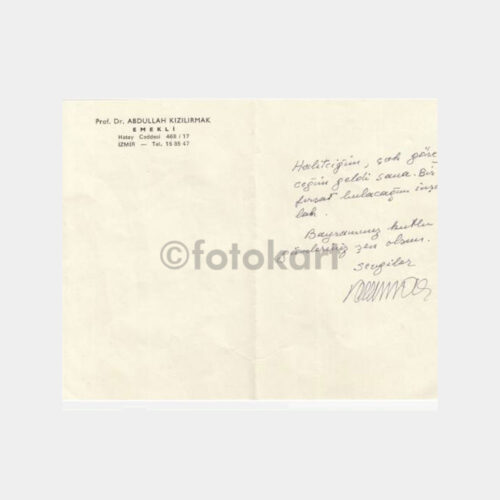 Prof. Dr. ABDULLAH KIZILIRMAK
EMEKLİ
Hatay Caddesi 468 / 17
İZMİR — Tel. 15 35 47
Halitciğim, çok göre
ceğim geldi sana. Bir
fırsat bulacağım inşa
lah.
Bayramınız kutlu
günleriniz şen olsun.
Sevgiler
©fotokart